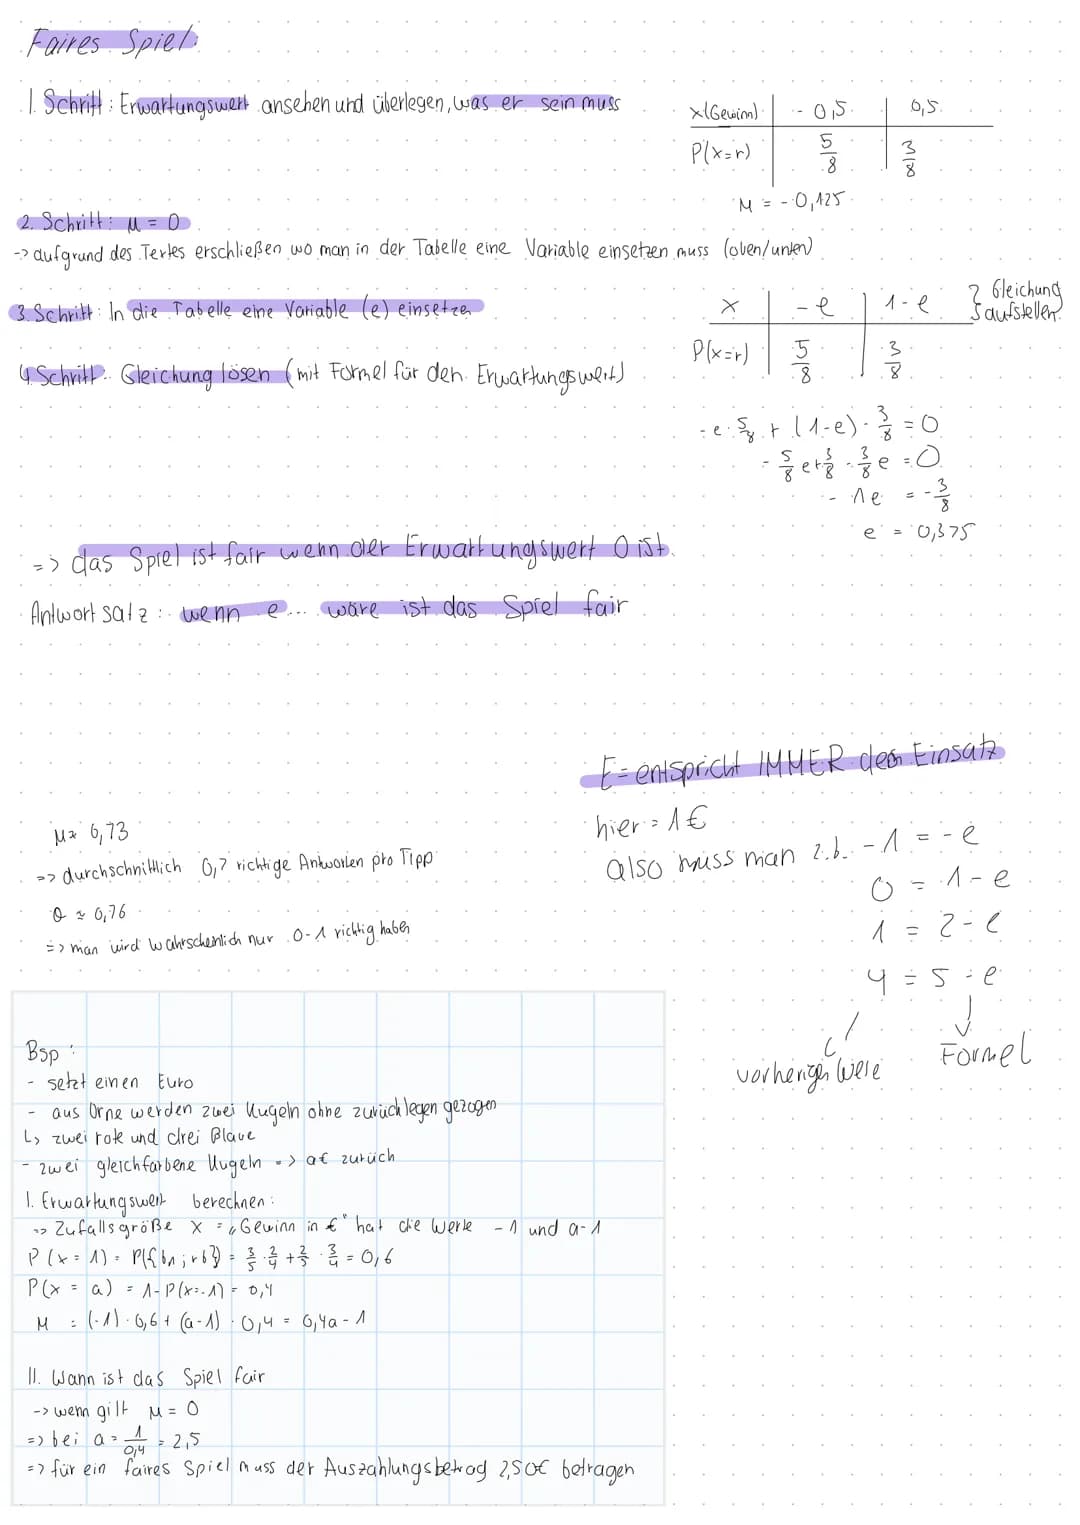 Faires Spiel:
1. Schritt: Erwartungswert ansehen und überlegen, was er sein muss
x (Gewinn) | -0,5 | 0,5
P(x=r) | 5/8 | 3/8
M = -0,125
2. Schritt: μ = 0
-> aufgrund des Textes erschließen wo man in der Tabelle eine Variable einsetzen muss (oben/unten)
3. Schritt: In die Tabelle eine Variable (e) einsetzen
x | -e | 1-e } Gleichung aufstellen
P(x=r) | 5/8 | 3/8
4. Schritt: Gleichung lösen (mit Formel für den Erwartungswert)
-e · 5/8 + (1-e) · 3/8 = 0
- 5/8 e + 3/8 - 3/8 e = 0
- 1e = - 3/8
e = 0,375
=> das Spiel ist fair wenn der Erwartungswert 0 ist.
Antwortsatz: wenn e... wäre ist das Spiel fair
E = entspricht IMMER dem Einsatz
hier = 1€
also muss man z.b. -1 = -e
0 = 1-e
1 = 2-e
4 = 5-e
vorherigen Werte
Formel
M ≈ 0,73
=> durchschnittlich 0,7 richtige Antworten pro Tipp
σ ≈ 0,76
=> man wird wahrscheinlich nur 0-1 richtig haben
Bsp:
- setzt einen Euro
- aus Urne werden zwei Kugeln ohne zurücklegen gezogen
↳ zwei rote und drei Blaue
- zwei gleichfarbene Kugeln => a€ zurück
I. Erwartungswert berechnen:
=> Zufallsgröße X = "Gewinn in €" hat die Werte -1 und a-1
P(x=1) = P({br; rb}) = 3/5 · 2/4 + 2/5 · 3/4 = 0,6
P(x = a) = 1-P(x=-1) = 0,4
M = (-1) · 0,6 + (a-1) · 0,4 = 0,4a - 1
II. Wann ist das Spiel fair
-> wenn gilt μ = 0
=> bei a = 1/0,4 = 2,5
=> für ein faires Spiel muss der Auszahlungsbetrag 2,50€ betragen